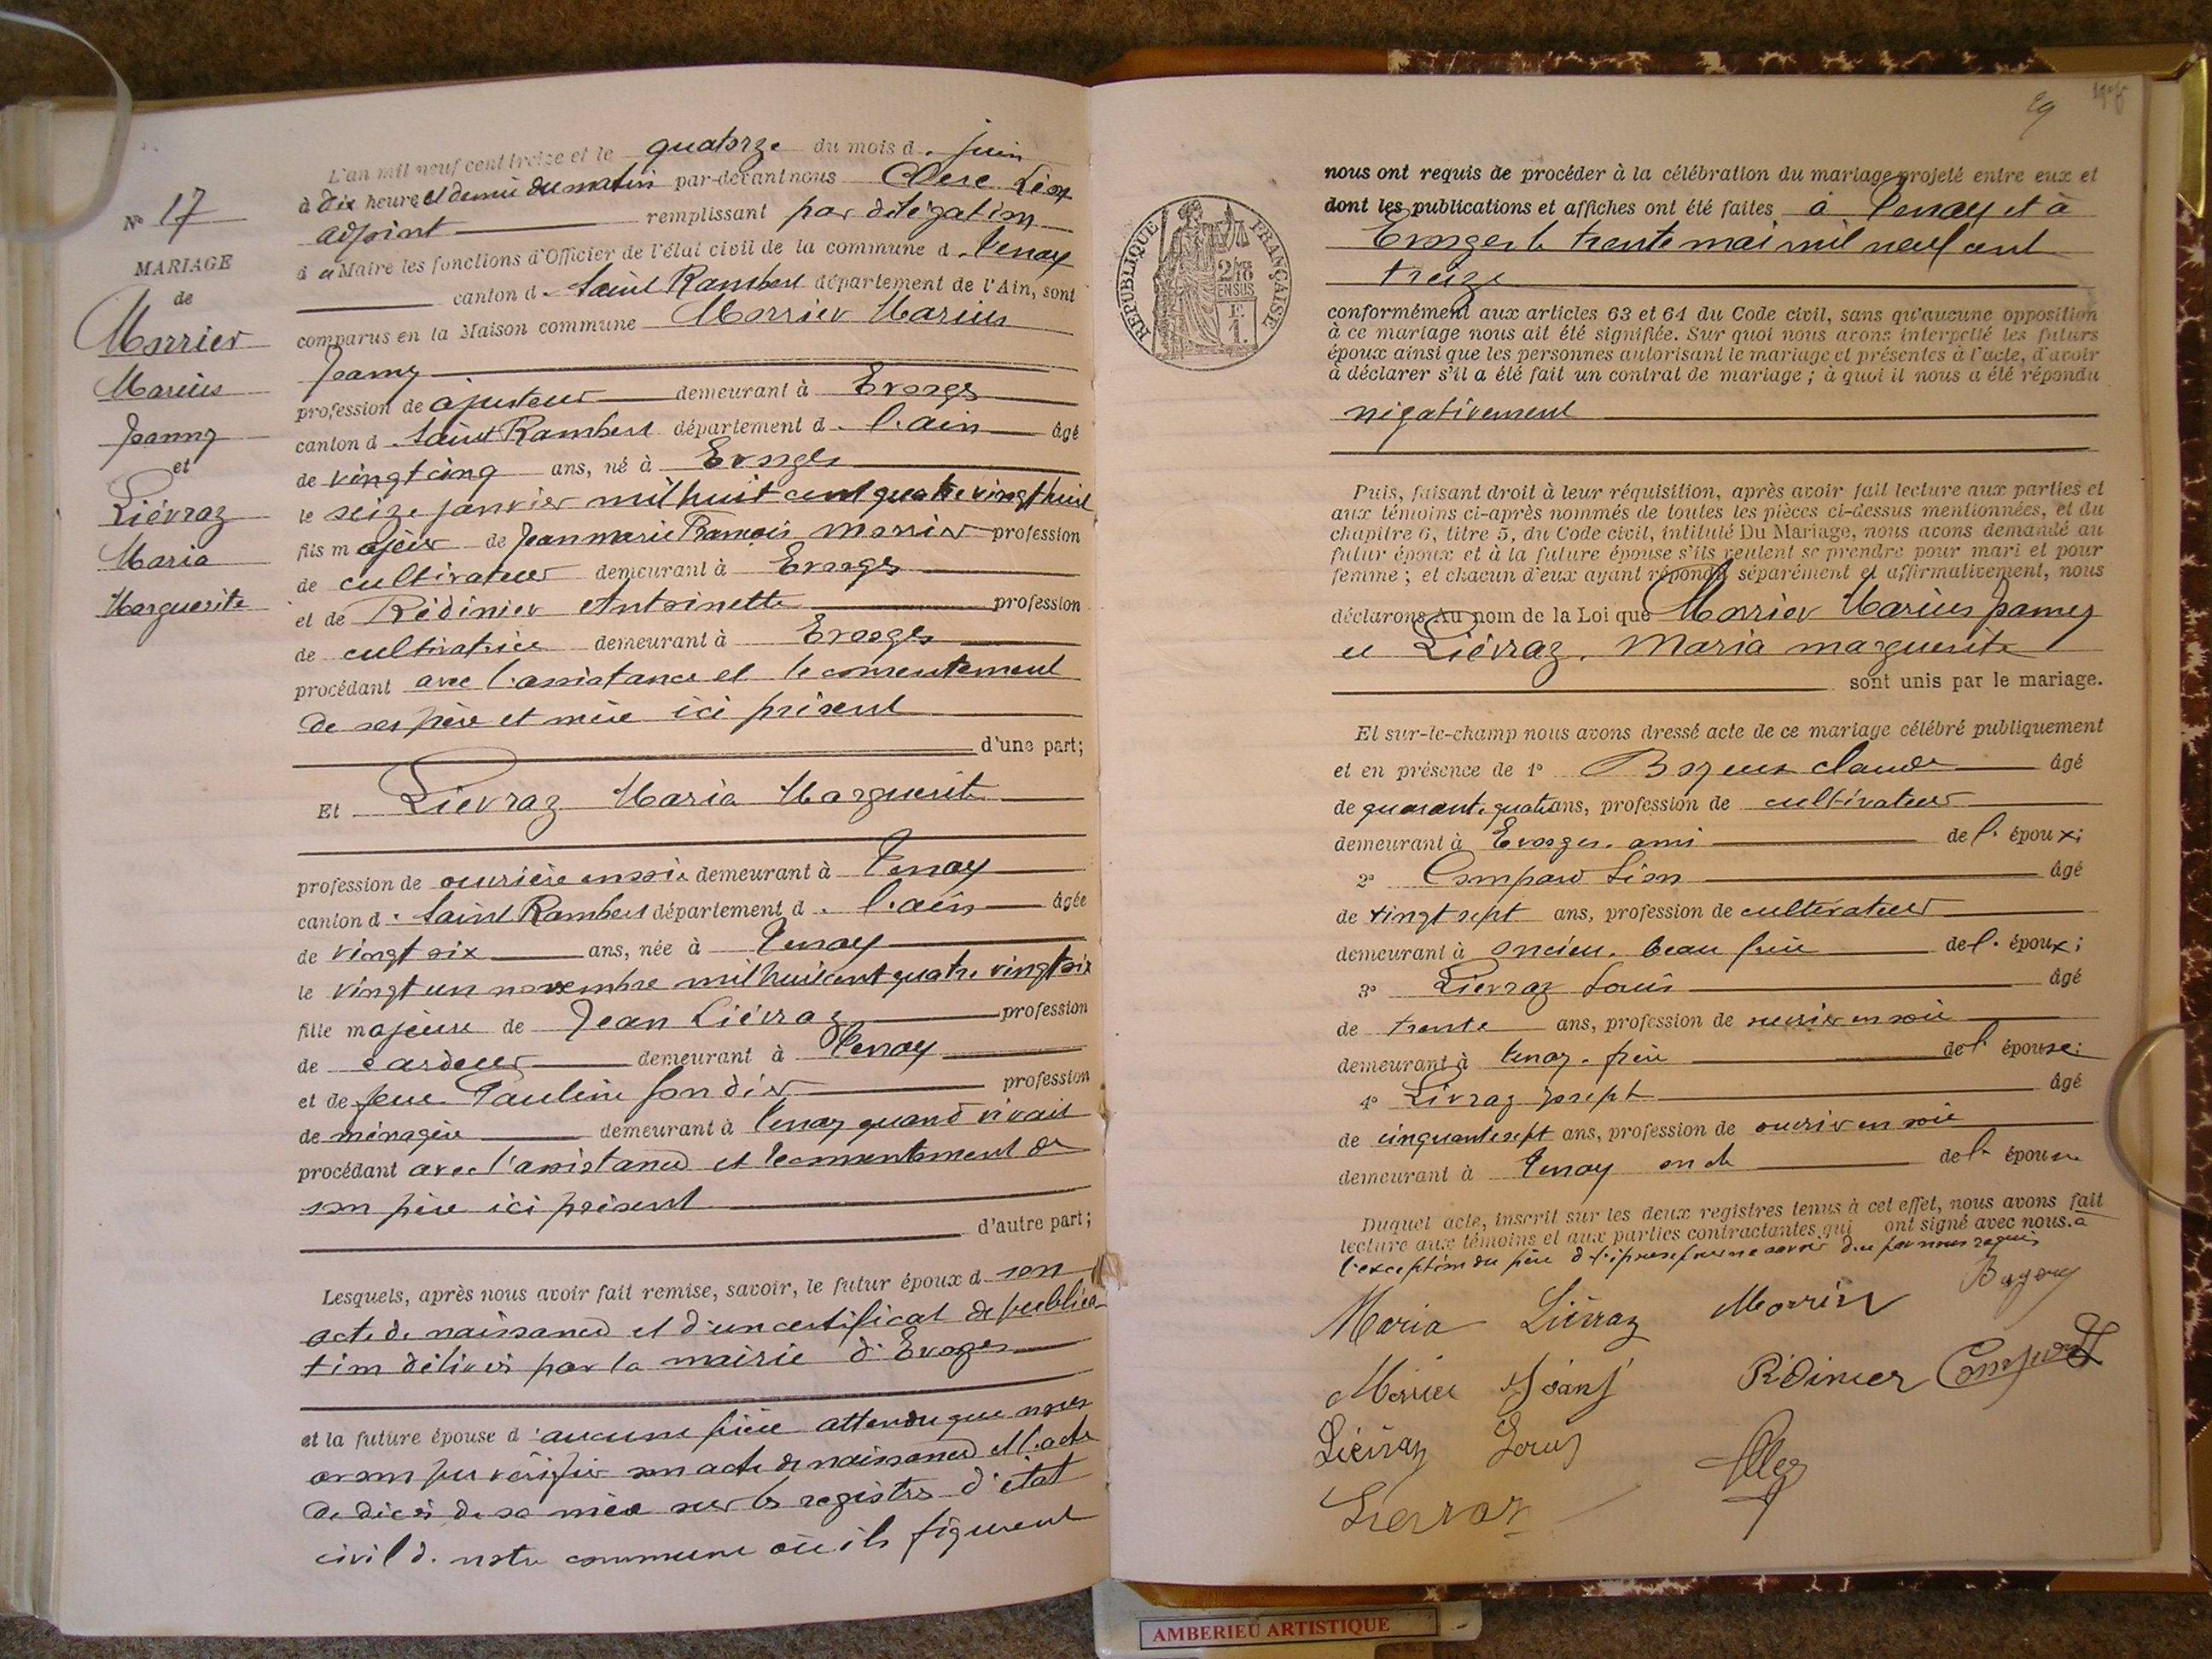 L'an mil neuf cent treize et le quatorze du mois d. juin
à dix heures et demie du matin par-devant nous Léon
adjoint remplissant par délégation
du Maire les fonctions d'Officier de l'état civil de la commune d. Tenay
canton d. Saint Rambert département de l'Ain, sont
comparus en la Maison commune Morrier Marius
Joanny
profession de ajusteur demeurant à Evosges
canton d. Saint Rambert département d. l'ain âgé
de vingt cinq ans, né à Evosges
le seize janvier mil huit cent quatre vingt huit
fils majeur de Jean marie François morrier profession
de cultivateur demeurant à Evosges
et de Rédinier Antoinette profession
de cultivatrice demeurant à Evosges
procédant avec l'assistance et le consentement
de ses père et mère ici présent
d'une part;
Et Liévraz Maria Marguerite
profession de ouvrière en soie demeurant à Tenay
canton d. Saint Rambert département d. l'ain âgée
de vingt six ans, née à Tenay
le vingt un novembre mil huit cent quatre vingt six
fille majeure de Jean Liévraz profession
de cardeur demeurant à Tenay
et de feue Pauline profession
de ménagère demeurant à Tenay quand vivait
procédant avec l'assistance et le consentement de
son père ici présent
d'autre part;
Lesquels, après nous avoir fait remise, savoir, le futur époux d son
acte de naissance et d'un certificat de publica-
tion délivré par la mairie d'Evosges
et la future épouse d'aucune pièce attendu que nous
avons pu vérifier son acte de naissance et l'acte
de décès de sa mère sur les registres d'état
civil d. notre commune où ils figurent
N° 17
MARIAGE
de
Morrier
Marius
Joanny
et
Liévraz
Maria
Marguerite
29
RÉPUBLIQUE FRANÇAISE
2/10
EN SUS
nous ont requis de procéder à la célébration du mariage projeté entre eux et
dont les publications et affiches ont été faites à Tenay et à
Evosges le trente mai mil neuf cent
treize
conformément aux articles 63 et 64 du Code civil, sans qu'aucune opposition
à ce mariage nous ait été signifiée. Sur quoi nous avons interpellé les futurs
époux ainsi que les personnes autorisant le mariage et présentes à l'acte, d'avoir
à déclarer s'il a été fait un contrat de mariage ; à quoi il nous a été répondu
négativement
Puis, faisant droit à leur réquisition, après avoir fait lecture aux parties et
aux témoins ci-après nommés de toutes les pièces ci-dessus mentionnées, et du
chapitre 6, titre 5, du Code civil, intitulé Du Mariage, nous avons demandé au
futur époux et à la future épouse s'ils veulent se prendre pour mari et pour
femme ; et chacun d'eux ayant répondu séparément et affirmativement, nous
déclarons Au nom de la Loi que Morrier Marius Joanny
et Liévraz. Maria marguerite
sont unis par le mariage.
Et sur-le-champ nous avons dressé acte de ce mariage célébré publiquement
et en présence de 1° claude âgé
de quarante quatre ans, profession de cultivateur
demeurant à Evosges. ami de l. époux;
2° Léon âgé
de vingt sept ans, profession de cultivateur
demeurant à oncieu. beau frère de l. époux;
3° Liévraz Louis âgé
de trente ans, profession de ouvrier en soie
demeurant à tenay. frère de l' épouse;
4° Livraz joseph âgé
de cinquante sept ans, profession de ouvrier en soie
demeurant à Tenay oncle de l. épouse
Duquel acte, inscrit sur les deux registres tenus à cet effet, nous avons fait
lecture aux témoins et aux parties contractantes qui ont signé avec nous. à
l'exception du père d l'épouse pour ne savoir d. ce par nous requis
Maria Liévraz Morrier
Morrier Rédinier
Liévraz Louis
Lievraz
AMBERIEU ARTISTIQUE